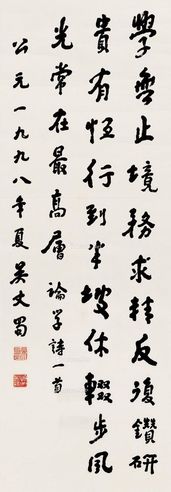 學無止境務求精反復鑽研
貴有恒行到半坡休輟步風
光常在最高層 論學詩一首
公元一九九八年夏 吴丈蜀